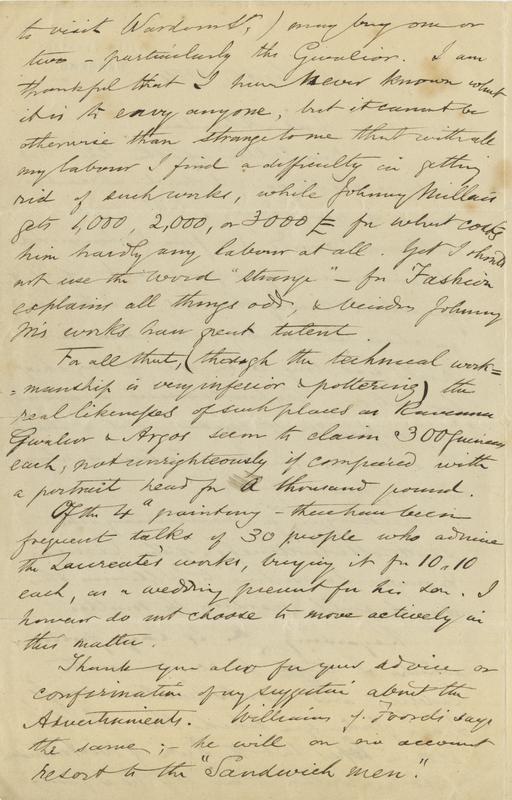 to visit Wardour St,) may buy one or
two – particularly the Gwalior. I am
thankful that I have never known what
it is to envy anyone, but it cannot be
otherwise than strange to me that with all
my labour I find a difficulty in getting
rid of such works, while Johnny Millais
gets 1,000, 2,000, or 3000 £ for what costs
him hardly any labour at all. Yet I should
not use the word "strange" – for Fashion
explains all things odd, & besides Johnny
M's works have great talent
For all that, (though the technical work=
=manship is very inferior & pottering) the
real likenesses of such places as Ravenna
Gwalior & Argos seem to claim 300 guineas
each, not unrighteously if compared with
a portrait head for a thousand pound.
Of the 4th painting – there have been
frequent talks of 30 people who admire
the Laureate's works, buying it for 10.10
each, as a wedding present for his son. I
however do not choose to move actively in
this matter.
Thank you also for your advice or
confirmation of my suggestion about the
Advertisements. Williams of Foords says
the same; – he will on no account
resort to the "Sandwich men".